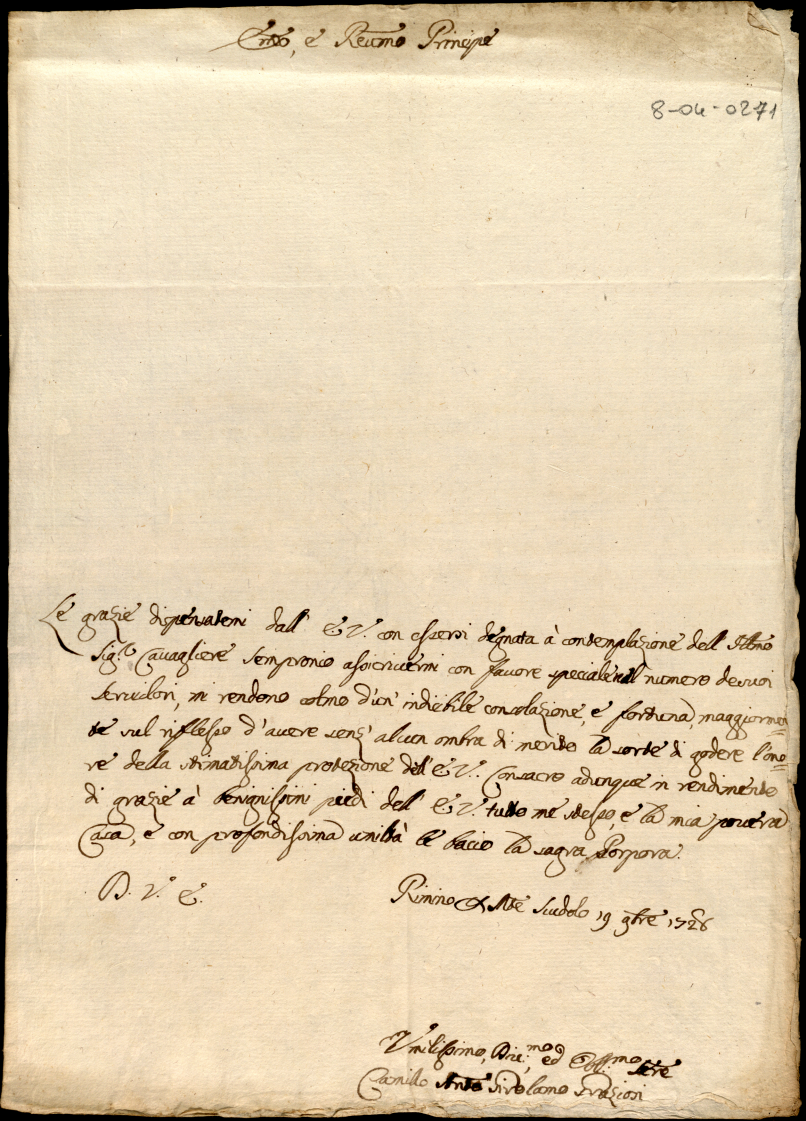 Emo, e Reumo Principe
8-04-0271
Le grazie dispensatemi dall' E.V. con essersi degnata à contemplazione dell' Illmo
Sig.r Cauagliere Sempronio assicriuermi con fauore speciale nel numero de suoi
Seruitori, mi rendono colmo d'un' indicibile consolazione, e fortuna, maggiormen=
te sul riflesso d'auere senz' alcun ombra di merito la sorte di godere l'ono=
re della stimatissima protezione dell' E.V. Consacro adunque in rendimento
di grazie à benignissimi piedi dell' E.V. tutto me stesso, e la mia pouera
Casa, e con profondissima umiltà le bacio la sagra Porpora.
D. V. E.
Rimino 19 9bre 1726
Vmilissimo, Diu.mo, ed Obb.mo Serre
Camillo Girolamo